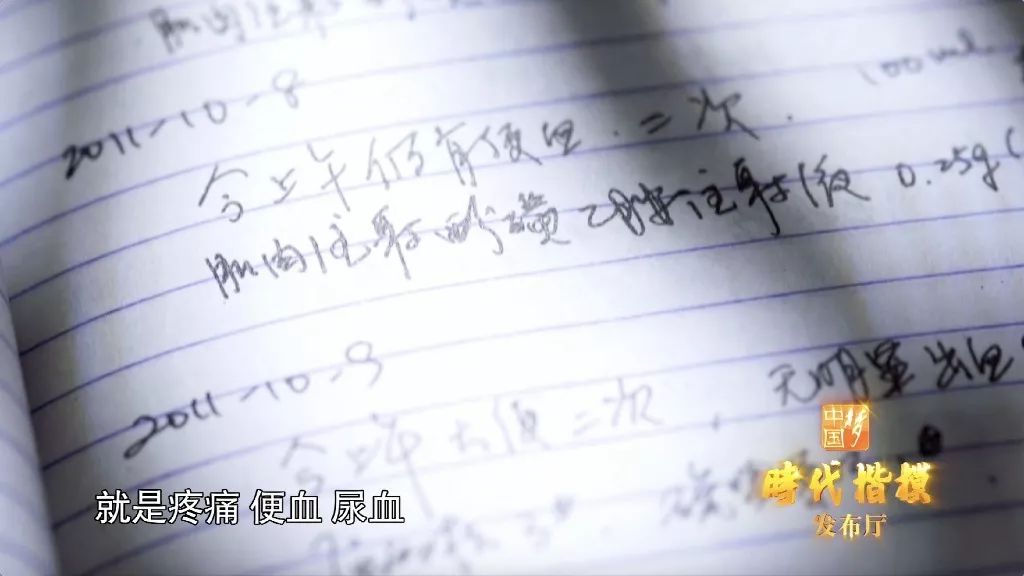 肌肉注射
100ml
2011-10-8
今上午仍有便血.二次.
肌肉注射酚磺乙胺注射液 0.25g(
2011-10-9
今上午大便二次,无明显出血
中国梦
時代楷模
发布厅
就是疼痛 便血 尿血